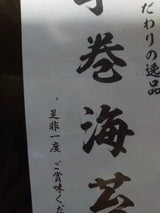 だわりの逸品
手巻海苔
是非一度 ご賞味くだ